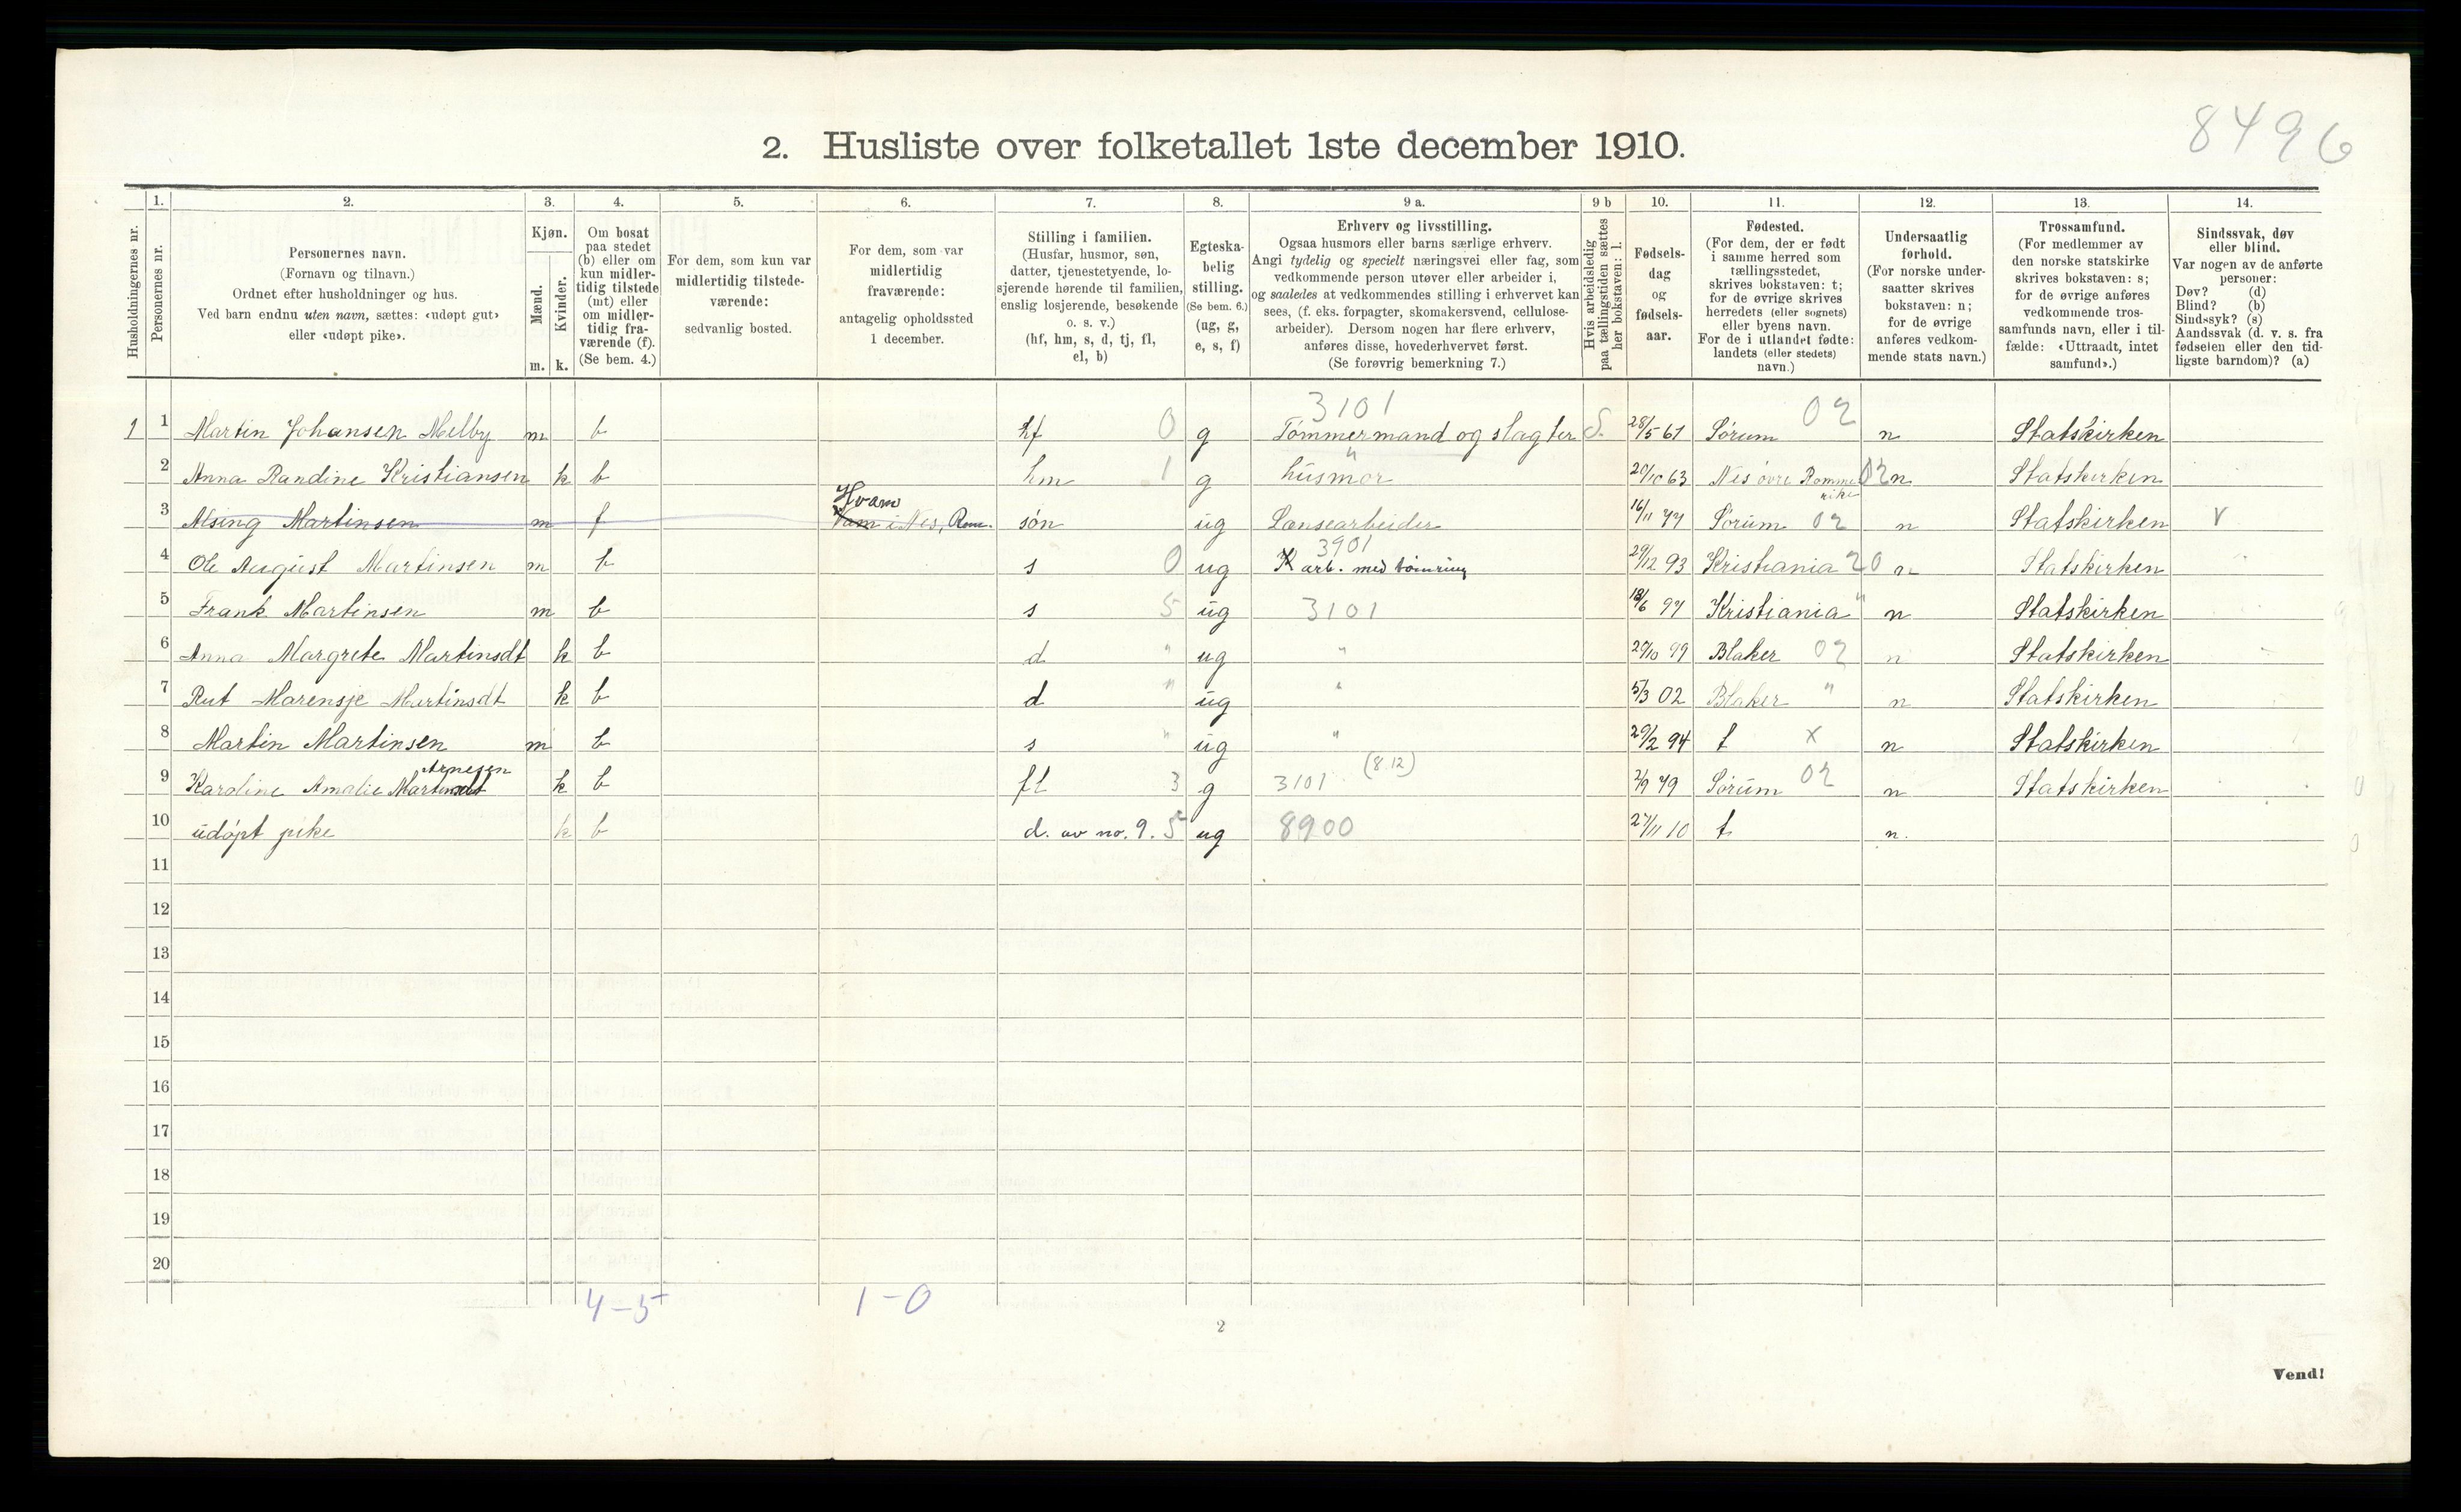 8496
2. Husliste over folketallet 1ste december 1910.
Husholdningernes nr.
1.
Personernes nr.
2.
Personernes navn.
(Fornavn og tilnavn.)
Ordnet efter husholdninger og hus.
Ved barn endnu uten navn, sættes: «udøpt gut»
eller «udøpt pike».
3.
Kjøn.
Mænd.
Kvinder.
m. k.
4.
Om bosat
paa stedet
(b) eller om
kun midler-
tidig tilstede
(mt) eller
om midler-
tidig fra-
værende (f).
(Se bem. 4.)
5.
For dem, som kun var
midlertidig tilstede-
værende:
sedvanlig bosted.
6.
For dem, som var
midlertidig
fraværende:
antagelig opholdssted
1 december.
7.
Stilling i familien.
(Husfar, husmor, søn,
datter, tjenestetyende, lo-
sjerende hørende til familien,
enslig losjerende, besøkende
o. s. v.)
(hf, hm, s, d, tj, fl,
el, b)
8.
Egteska-
belig
stilling.
(Se bem. 6.)
(ug, g,
e, s, f)
9 a.
Erhverv og livsstilling.
Ogsaa husmors eller barns særlige erhverv.
Angi tydelig og specielt næringsvei eller fag, som
vedkommende person utøver eller arbeider i,
og saaledes at vedkommendes stilling i erhvervet kan
sees, (f. eks. forpagter, skomakersvend, cellulose-
arbeider). Dersom nogen har flere erhverv,
anføres disse, hovederhvervet først.
(Se forøvrig bemerkning 7.)
9 b
Hvis arbeidsledig
paa tællingstiden sættes
her bokstaven: l.
10.
Fødsels-
dag
og
fødsels-
aar.
11.
Fødested.
(For dem, der er født
i samme herred som
tællingsstedet,
skrives bokstaven: t;
for de øvrige skrives
herredets (eller sognets)
eller byens navn.
For de i utlandet fødte:
landets (eller stedets)
navn.)
12.
Undersaatlig
forhold.
(For norske under-
saatter skrives
bokstaven: n;
for de øvrige
anføres vedkom-
mende stats navn.)
13.
Trossamfund.
(For medlemmer av
den norske statskirke
skrives bokstaven: s;
for de øvrige anføres
vedkommende tros-
samfunds navn, eller i til-
fælde: «Uttraadt, intet
samfund».)
14.
Sindssvak, døv
eller blind.
Var nogen av de anførte
personer:
Døv? (d)
Blind? (b)
Sindssyk? (s)
Aandssvak (d. v. s. fra
fødselen eller den tid-
ligste barndom)? (a)
3101 02
1 1 Martin Johansen Melby m b hf 0 g Tømmermand og slagter S. 28/5 61 Sørum n Statskirken
2 Anna Randine Kristiansen k b hm 1 g husmor " 20/10 63 Nes øvre Romme rike 02 n Statskirken
Hvam
3 Alsing Martinsen m f i Nes, Rom. søn ug Lænsearbeider 16/11 Sørum 02 n Statskirken V
3901
4 Ole August Martinsen m b s 0 ug arb. med tømring 29/12 93 Kristiania 20 n Statskirken
5 Frank Martinsen m b s 5 ug 3101 18/6 97 Kristiania " n Statskirken
6 Anna Margrete Martinsdt k b d " ug " 29/10 99 Blaker 02 n Statskirken
7 Rut Marensje Martinsdt k b d " ug " 5/3 02 Blaker " n Statskirken
8 Martin Martinsen m b s " ug " 29/2 94 t x n Statskirken
Arnesen (8.12)
9 Karoline Amalie k b fl 3 g 3101 2/9 79 Sørum 02 n Statskirken
10 udøpt pike k b d. av no. 9. 5 ug 8900 27/11 10 t n.
11
12
13
14
15
16
17
18
19
20
4-5 1-0
2
Vend!